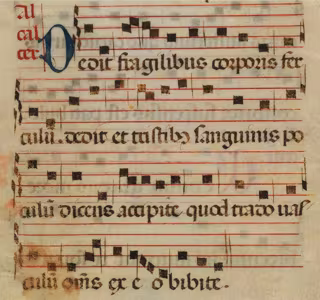 al
cal
cer
Dedit fragilibus corporis fer
culū. dedit et tristibȝ sanguinis po
culū dicens accipite quod trado vas
culū om̄s ex e o bibite.